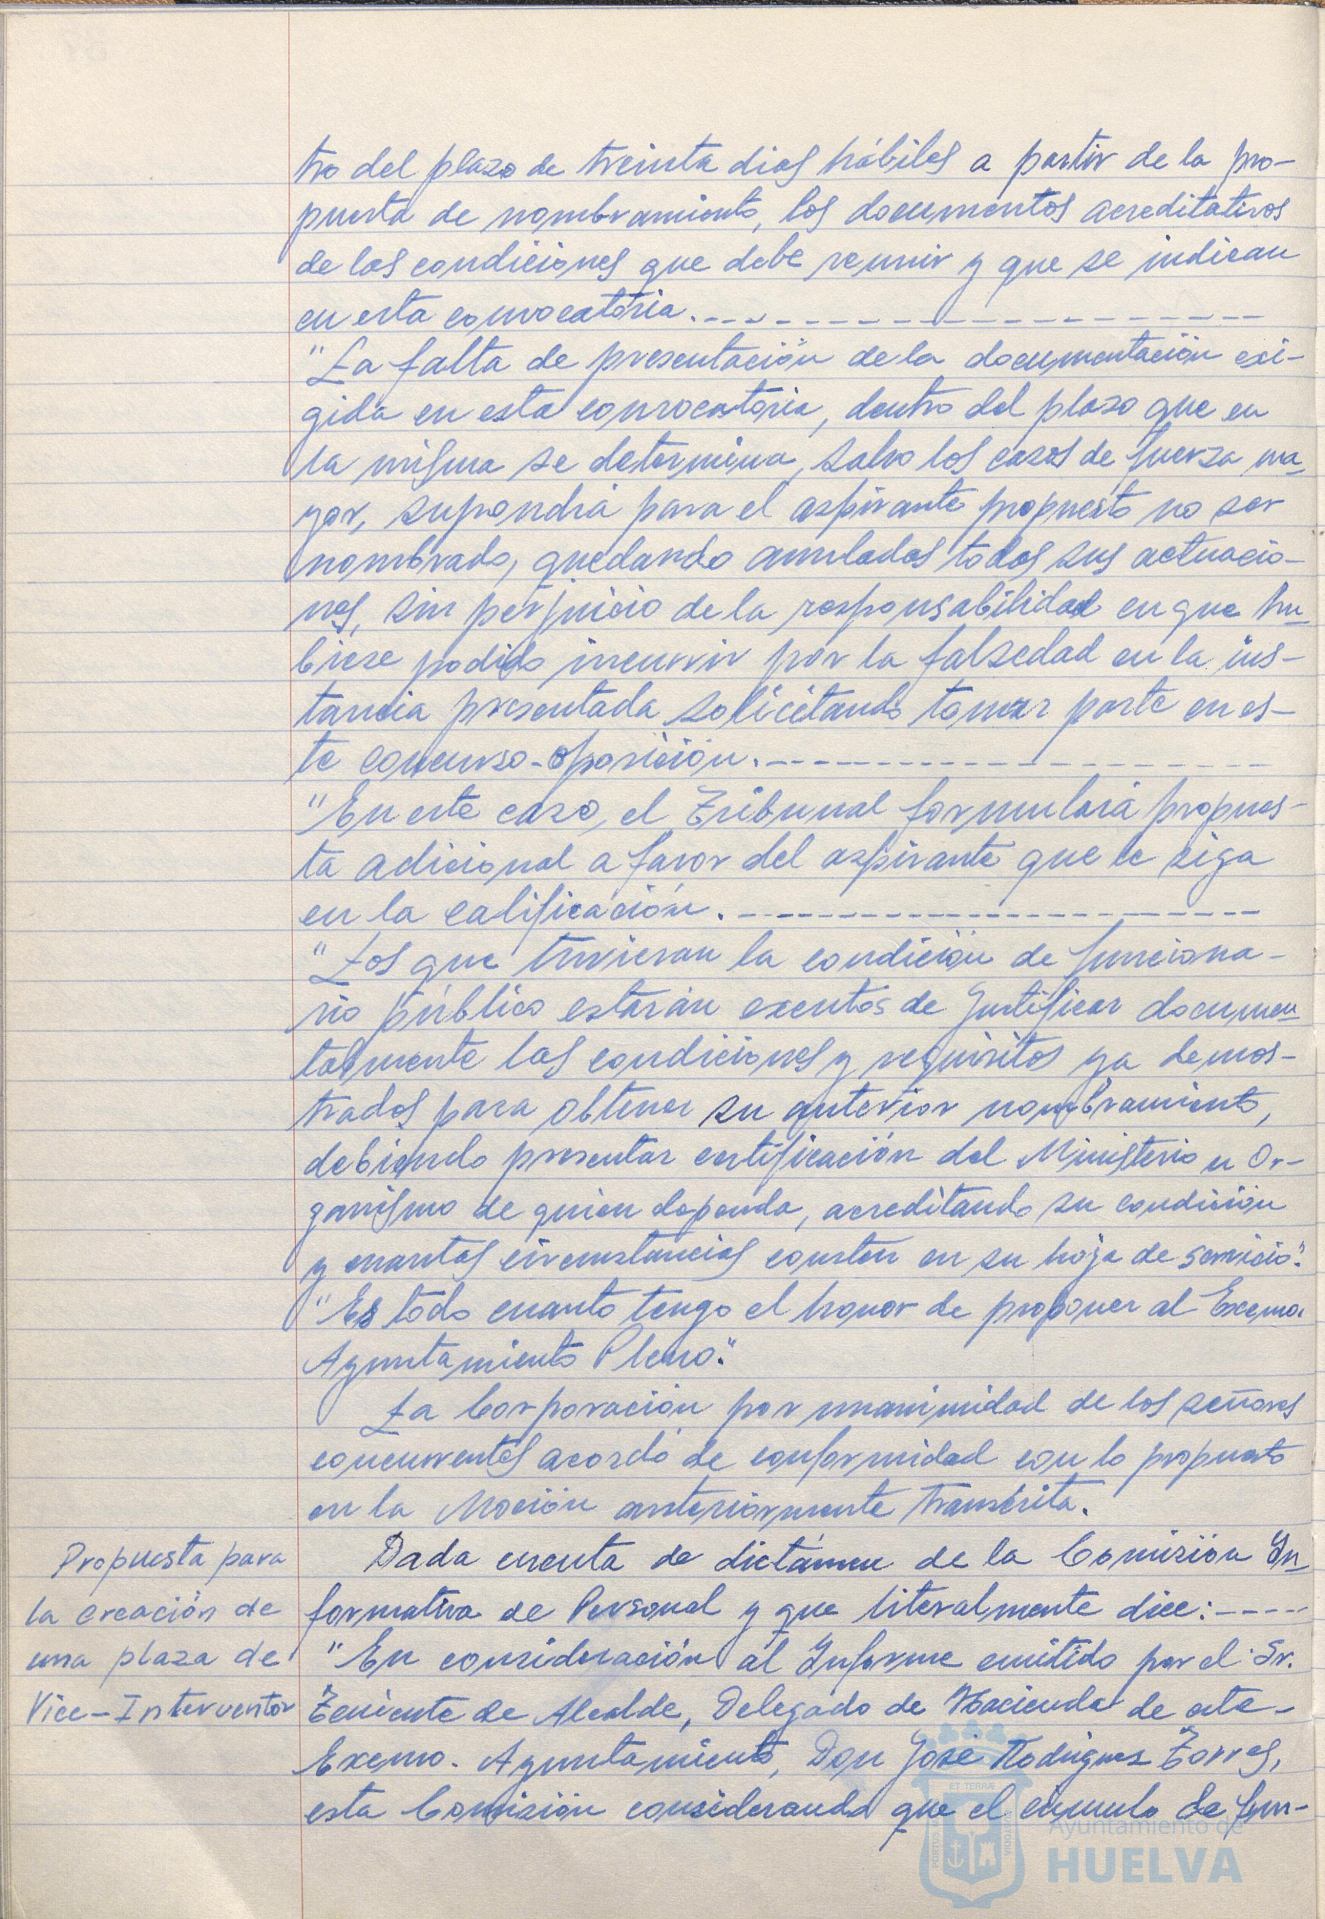 tro del plazo de treinta dias hábiles a partir de la pro-
puesta de nombramiento, los documentos acreditativos
de las condiciones que debe reunir y que se indican
en esta convocatoria.
"La falta de presentación de la documentación exi-
gida en esta convocatoria, dentro del plazo que en
la misma se determina, salvo los casos de fuerza ma-
yor, supondrá para el aspirante propuesto no ser
nombrado, quedando anuladas todas sus actuacio-
nes, sin perjuicio de la responsabilidad en que hu-
biese podido incurrir por la falsedad en la ins-
tancia presentada solicitando tomar parte en es-
te concurso-oposición.
"En este caso, el Tribunal formulará propues-
ta adicional a favor del aspirante que le siga
en la calificación.
"Los que tuvieran la condición de funciona-
rio público estarán exentos de justificar documen-
talmente las condiciones y requisitos ya demos-
trados para obtener su anterior nombramiento,
debiendo presentar certificación del Ministerio u Or-
ganismo de quien dependa, acreditando su condición
y cuantas circunstancias consten en su hoja de servicio".
"Es todo cuanto tengo el honor de proponer al Excmo.
Ayuntamiento Pleno".
La Corporación por unanimidad de los señores
concurrentes acordó de conformidad con lo propuesto
en la Moción anteriormente transcrita.
Propuesta para
la creación de
una plaza de
Vice-Interventor
Dada cuenta de dictámen de la Comisión In-
formativa de Personal y que literalmente dice:----
"En consideración al Informe emitido por el Sr.
Teniente de Alcalde, Delegado de Hacienda de este
Excmo. Ayuntamiento, Don José Rodriguez Torres,
esta Comisión considerando que el cúmulo de fun-
Ayuntamiento de
HUELVA